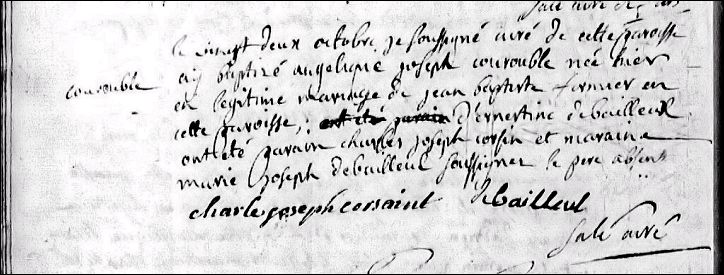 le vingt deux octobre je soussigné curé de cette paroisse
ay baptizé angelique joseph courouble née hier
courouble
en legitime mariage de jean baptiste fermier en
cette paroisse, ont été parain d'ernestine debailleux
ont été parain charles joseph corsin et maraine
marie joseph debailleul soussignez le pere absent
charle joseph corsaint debailleul
salé curé